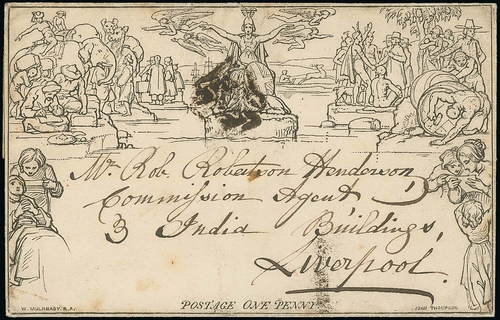 Mr. Rob. Robertson Henderson
Commission Agent
3 India Buildings,
Liverpool.
POSTAGE ONE PENNY
W. MULREADY. R.A.
JOHN THOMPSON